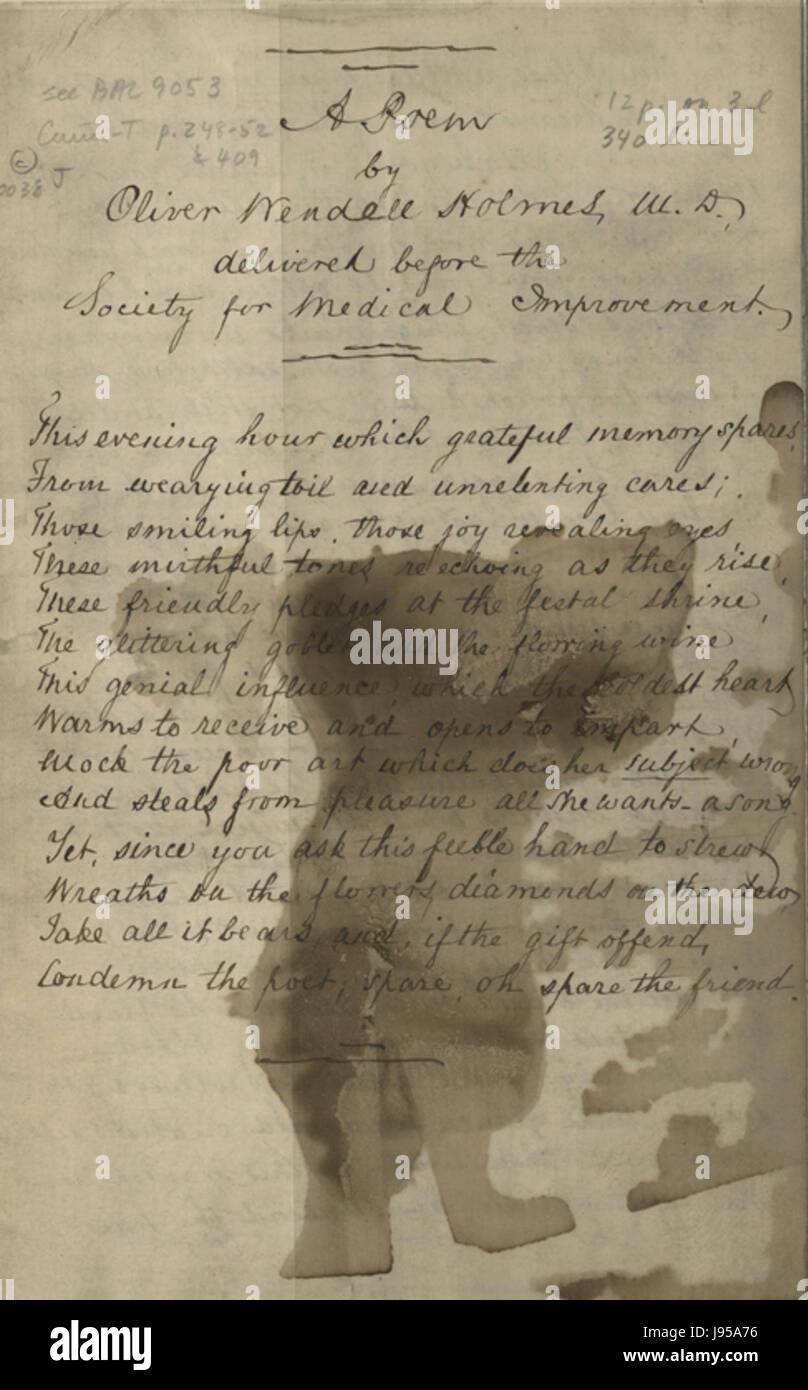 see BAL 9053
Cam-T p. 248-52
& 409
© J
0038
12 p. on 3 l
340
A Poem
by
Oliver Wendell Holmes, M. D.,
delivered before the
Society for Medical Improvement.
This evening hour which grateful memory spares
From wearying toil and unrelenting cares;
Those smiling lips, those joy revealing eyes
These mirthful tones reechoing as they rise,
These friendly pledges at the festal shrine,
The glittering goblet the flowing wine
This genial influence, which the coldest heart
Warms to receive and opens to impart,
Mock the poor art which does her subject wrong
And steals from pleasure all she wants - a song.
Yet, since you ask this feeble hand to strew
Wreaths on the flowers, diamonds on the dew,
Take all it bears, and, if the gift offend,
Condemn the poet; spare, oh spare the friend.
alamy
alamy
alamy
alamy
a a a
a a
a a a
alamy
Image ID: J95A76
www.alamy.com